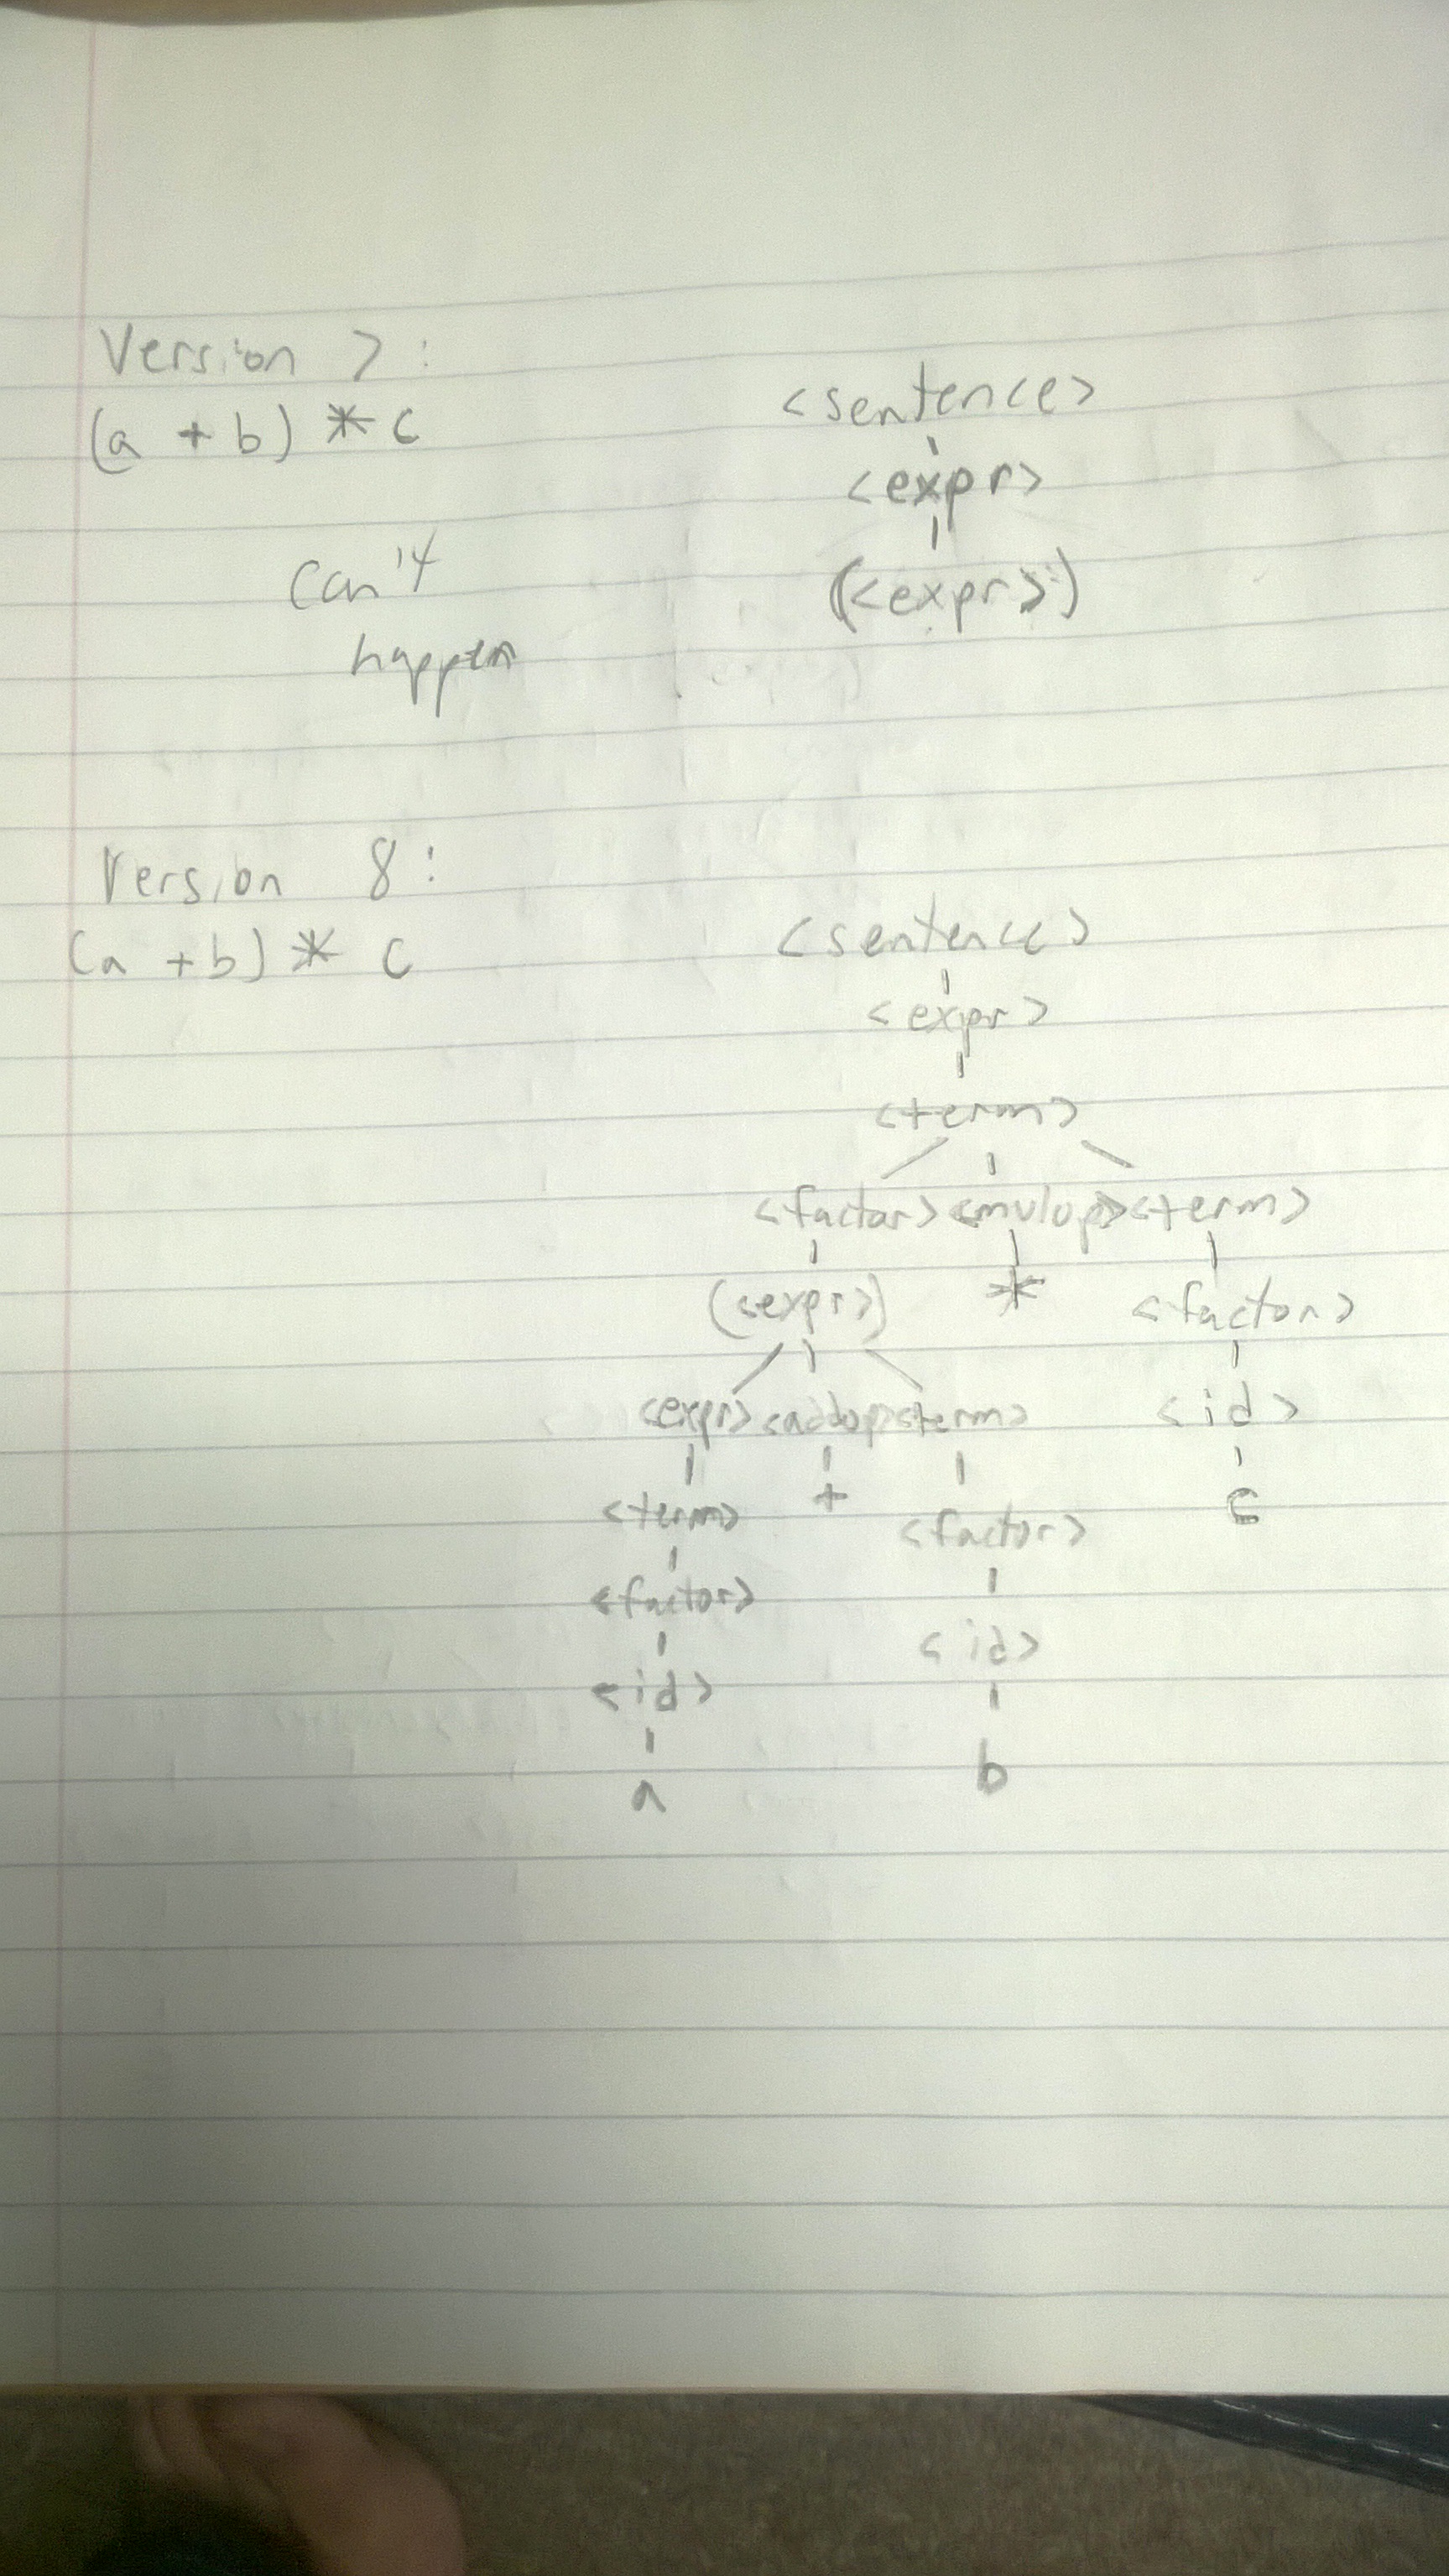 Version 7:
(a + b) * c
<sentence>
<expr>
(<expr>)
Can't
happen
Version 8:
(a + b) * c
<sentence>
<expr>
<term>
<factor> <mulop> <term>
(<expr>) * <factor>
<expr> <addop> <term> <id>
<term> + <factor> c
<factor> <id>
<id> b
a